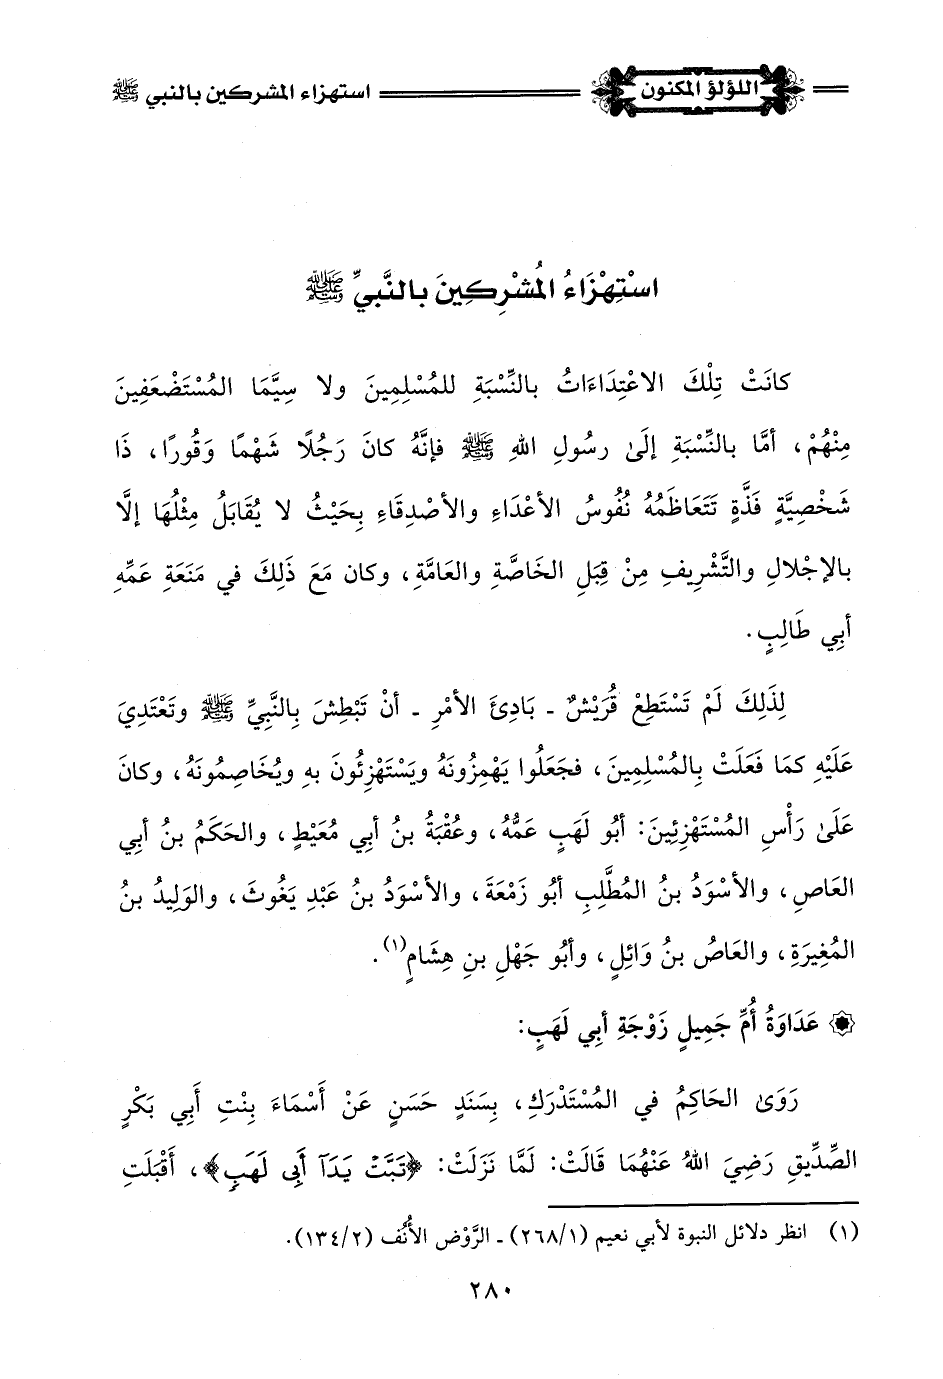 اللؤلؤ المكنون
استهزاء المشركين بالنبي ﷺ
اسْتِهْزَاءُ المُشْرِكِينَ بالنَّبيِّ ﷺ
كانَتْ تِلْكَ الاعْتِدَاءَاتُ بالنِّسْبَةِ للمُسْلِمِينَ ولا سِيَّمَا المُسْتَضْعَفِينَ
مِنْهُمْ، أمَّا بالنِّسْبَةِ إلَىٰ رسُولِ اللهِ ﷺ فإنَّهُ كانَ رَجُلًا شَهْمًا وَقُورًا، ذَا
شَخْصِيَّةٍ فَذَّةٍ تَتَعَاظَمُهُ نُفُوسُ الأعْدَاءِ والأصْدِقَاءِ بِحَيْثُ لا يُقَابَلُ مِثْلُهَا إلَّا
بالإجْلالِ والتَّشْرِيفِ مِنْ قِبَلِ الخَاصَّةِ والعَامَّةِ، وكان مَعَ ذَلِكَ في مَنَعَةِ عَمِّهِ
أبِي طَالِبٍ.
لِذَلِكَ لَمْ تَسْتَطِعْ قُرَيْشٌ - بَادِئَ الأمْرِ - أنْ تَبْطِشَ بِالنَّبِيِّ ﷺ وتَعْتَدِيَ
عَلَيْهِ كمَا فَعَلَتْ بِالمُسْلِمِينَ، فجَعَلُوا يَهْمِزُونَهُ ويَسْتَهْزِئُونَ بهِ ويُخَاصِمُونَهُ، وكانَ
عَلَىٰ رَأْسِ المُسْتَهْزِئِينَ: أبُو لَهَبٍ عَمُّهُ، وعُقْبَةُ بنُ أبِي مُعَيْطٍ، والحَكَمُ بنُ أبِي
العَاصِ، والأسْوَدُ بنُ المُطَّلِبِ أبُو زَمْعَةَ، والأسْوَدُ بنُ عَبْدِ يَغُوثَ، والوَلِيدُ بنُ
المُغِيرَةِ، والعَاصُ بنُ وَائِلٍ، وأبُو جَهْلِ بنِ هِشَامٍ(١).
عَدَاوَةُ أُمِّ جَمِيلٍ زَوْجَةِ أبِي لَهَبٍ:
رَوَىٰ الحَاكِمُ في المُسْتَدْرَكِ، بِسَنَدٍ حَسَنٍ عَنْ أَسْمَاءَ بِنْتِ أَبِي بَكْرٍ
الصِّدِّيقِ رَضِيَ اللهُ عَنْهُمَا قَالَتْ: لَمَّا نَزَلَتْ: ﴿تَبَّتْ يَدَآ أَبِى لَهَبٍ﴾، أَقْبَلَتِ
(١) انظر دلائل النبوة لأبي نعيم (٢٦٨/١) - الرَّوْض الأُنُف (١٣٤/٢).
٢٨٠